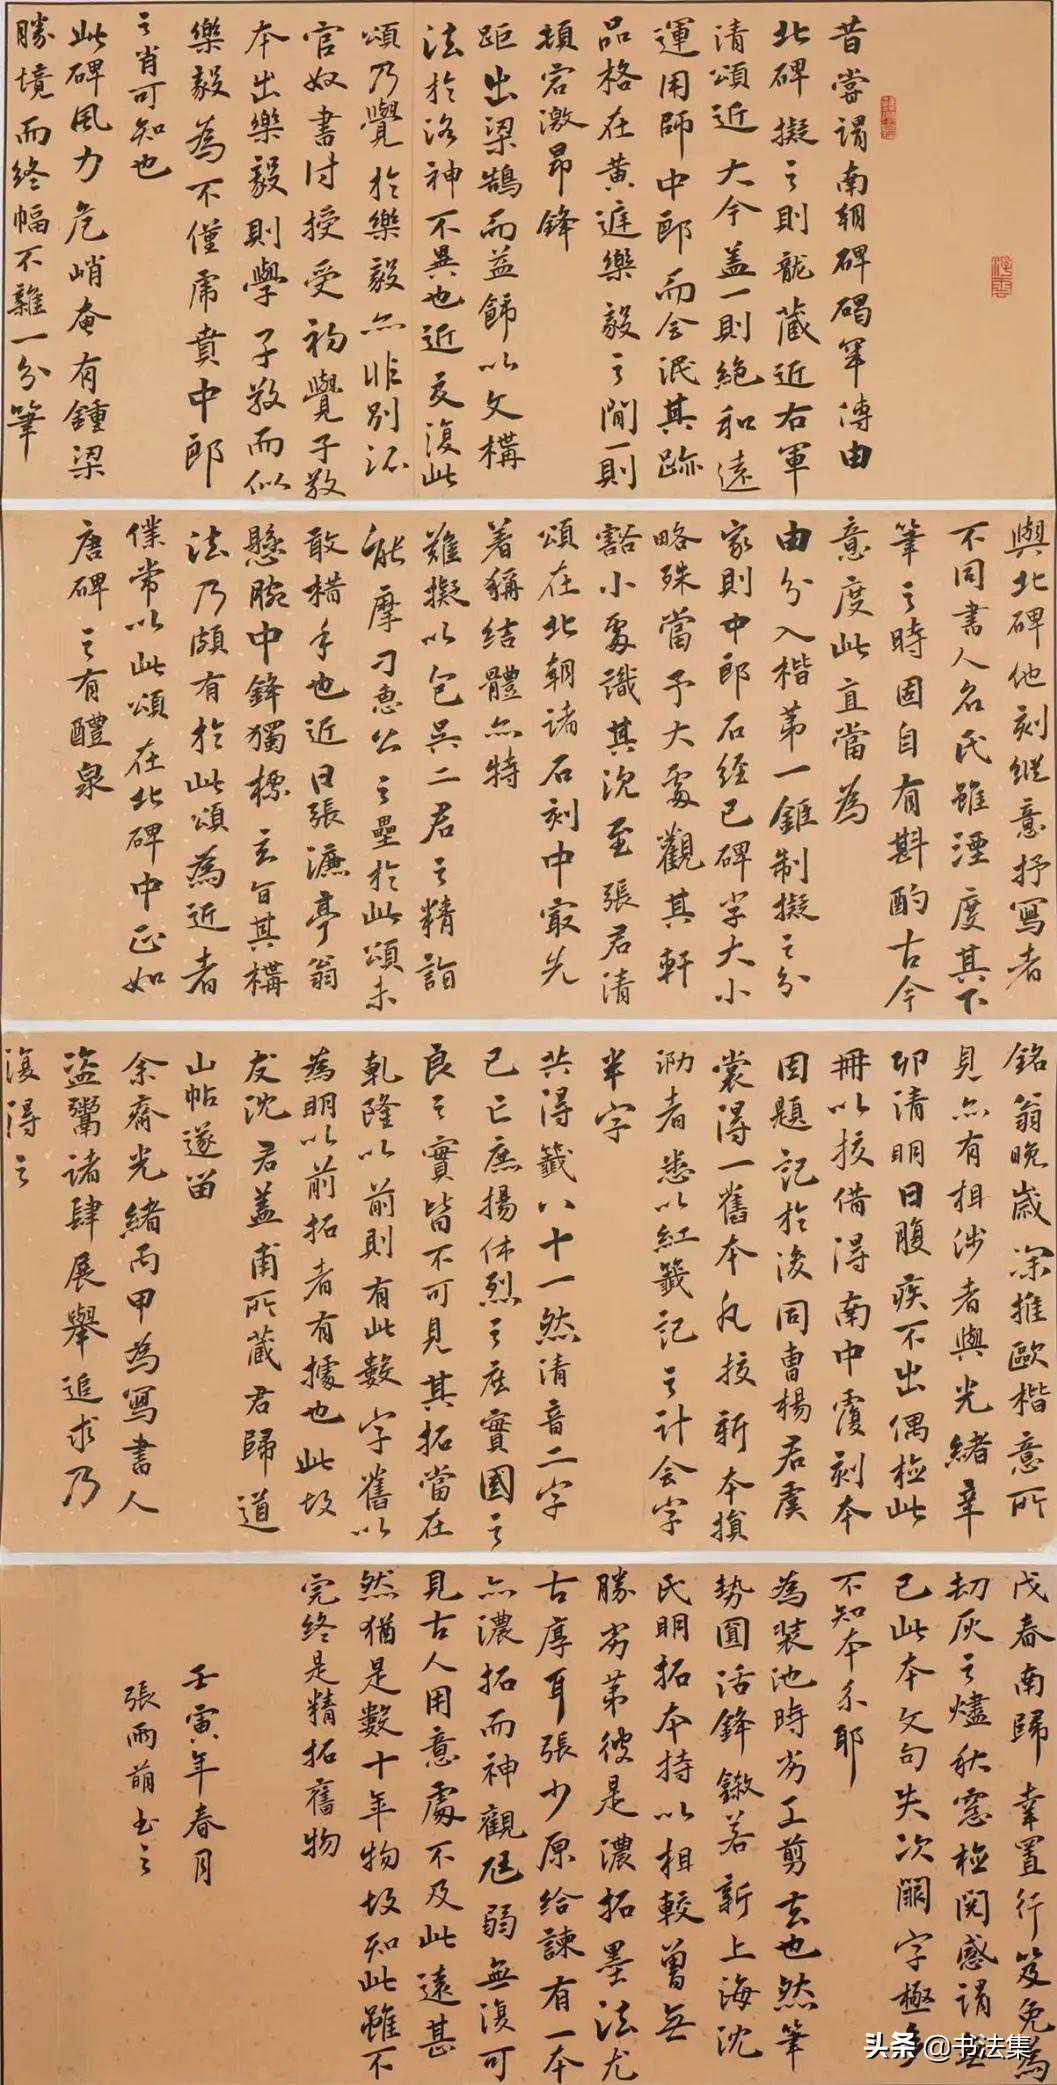 昔嘗謂南朝碑碣罕傳由
北碑擬之則龍藏近右軍
清頌近大令蓋一則絶和遠
運用師中郎而全泯其跡
品格在黄庭樂毅之間一則
頓宕激昂鋒
距出梁鵠而益飾以文構
法於洛神不異也近反復此
頌乃覺於樂毅亦非別派
官奴書付授受初覺子敬
本出樂毅則學子敬而似
樂毅為不僅席賁中郎
之肖可知也
此碑風力危峭奄有鍾梁
勝境而終幅不雜一分筆
與北碑他刻縱意抒寫者
不同書人名氏雖湮度其下
筆之時固自有斟酌古今
意度此直當為
由分入楷第一錐制擬之分
家則中郎石經已碑字大小
略殊當予大處觀其軒
豁小處識其沈至張君清
頌在北朝諸石刻中最先
着稱結體亦特
難擬以包吳二君之精詣
能摩刁惠公之壘於此頌未
敢措手也近日張濂亭翁
懸腕中鋒獨標玄旨其構
法乃頗有於此頌為近者
僕常以此頌在北碑中正如
唐碑之有醴泉
銘翁晚歲深推歐楷意所
見亦有相涉者與光緒辛
卯清明日腹疾不出偶檢此
冊以挍借得南中覆刻本
因題記於後同曹楊君虞
裳得一舊本凡挍新本損
泐者悉以紅籤記之計会字
半字
共得籤八十一然清音二字
已亡庶揚休烈之庶實國之
良之實皆不可見其拓當在
乾隆以前則有此數字舊以
為明以前拓者有據也此故
友沈君蓋甫所藏君歸道
山帖遂留
余齋光緒丙甲為寫書人
盗鬻諸肆展舉追求乃
復得之
戊春南歸幸置行笈免為
刼灰之燼秋窓檢閱感謂無
已此本文句失次闕字極多
不知本系耶
為装池時劣工剪去也然筆
勢圓活鋒鎩若新上海沈
氏明拓本持以相較曽無
勝劣第彼是濃拓墨法尤
古厚耳張少原給諫有一本
亦濃拓而神觀尫弱無復可
見古人用意處不及此遠甚
然猶是數十年物故知此雖不
完終是精拓舊物
壬寅年春月
張雨萌書之
头条@书法集